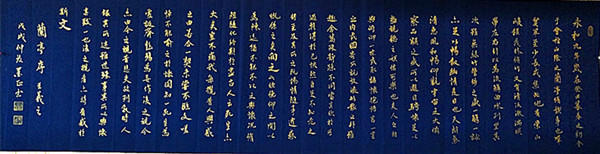 永和九年歲在癸丑暮春之初會
于會稽山陰之蘭亭脩禊事也羣
賢畢至少長咸集此地有崇山
峻領茂林脩竹又有清流激湍映
帶左右引以為流觴曲水列坐其
次雖無絲竹管弦之盛一觴一詠
亦足以暢敘幽情是日也天朗氣
清惠風和暢仰觀宇宙之大俯
察品類之盛所以遊目騁懷足以
極視聽之娛信可樂也夫人之相
與俯仰一世或取諸懷抱悟言一室
之內或因寄所託放浪形骸之外雖
趣舍萬殊靜躁不同當其欣於所
遇暫得於己快然自足不知老之
將至及其所之既惓情隨事遷感
慨係之矣向之所欣俛仰之間以
為陳迹猶不能不以之興懷況脩
短隨化終期於盡古人云死生亦
大矣豈不痛哉每攬昔人興感
之由若合一契未嘗不臨文嗟
悼不能喻之於懷固知一死生為
虛誕齊彭殤為妄作後之視今
亦由今之視昔悲夫故列敘時人
錄其所述雖世殊事異所以興懷
其致一也後之攬者亦將有感於
斯文
蘭亭序 王羲之
戊戌仲夏